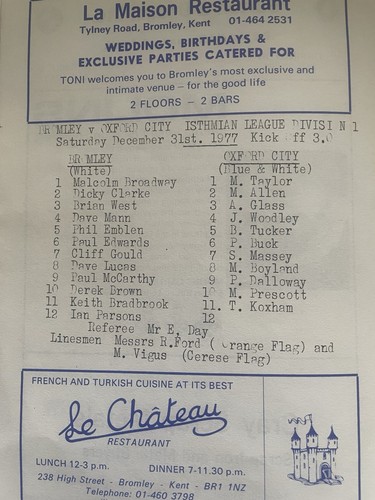 La Maison Restaurant
Tylney Road, Bromley, Kent 01-464 2531
WEDDINGS, BIRTHDAYS &
EXCLUSIVE PARTIES CATERED FOR
TONI welcomes you to Bromley's most exclusive and
intimate venue – for the good life
2 FLOORS – 2 BARS
BROMLEY v OXFORD CITY ISTHMIAN LEAGUE DIVISION 1
Saturday December 31st. 1977 Kick off 3.0
BROMLEY OXFORD CITY
(White) (Blue & White)
1 Malcolm Broadway 1 M. Taylor
2 Dicky Clarke 2 M. Allen
3 Brian West 3 A. Glass
4 Dave Mann 4 J. Woodley
5 Phil Emblen 5 B. Tucker
6 Paul Edwards 6 P. Buck
7 Cliff Gould 7 S. Massey
8 Dave Lucas 8 M. Boyland
9 Paul McCarthy 9 P. Dalloway
10 Derek Brown 10 M. Prescott
11 Keith Bradbrook 11. T. Koxham
12 Ian Parsons 12
Referee Mr E. Day
Linesmen Messrs R.Ford ( Orange Flag) and
M. Vigus (Cerese Flag)
FRENCH AND TURKISH CUISINE AT ITS BEST
Le Château
RESTAURANT
LUNCH 12-3 p.m. DINNER 7-11.30 p.m.
238 High Street - Bromley - Kent - BR1 1NZ
Telephone: 01-460 3798